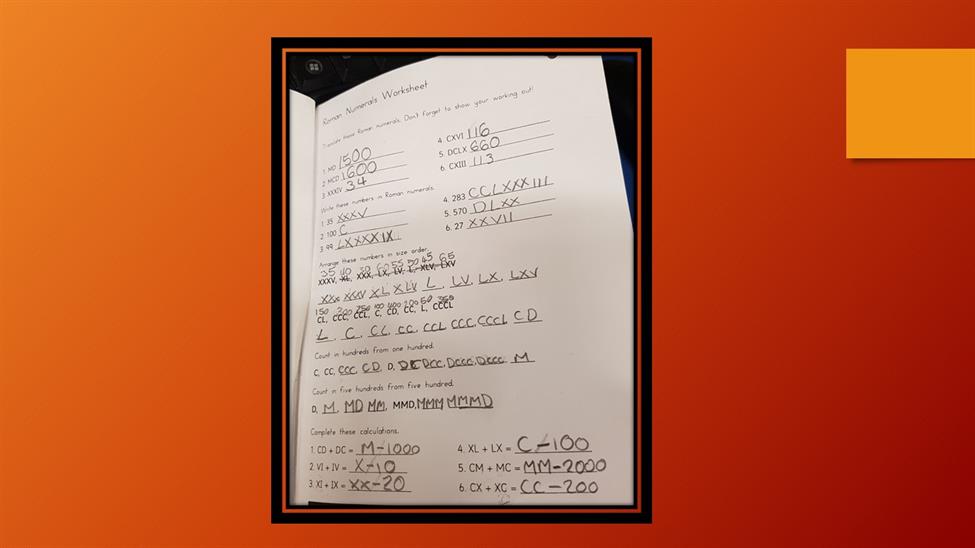 Roman Numerals Worksheet
Translate these Roman numerals. Don't forget to show your working out!
1. MD 1500
2. MCD 1600
3. XXXIV 34
4. CXVI 116
5. DCLX 660
6. CXIII 113
Write these numbers in Roman numerals.
1. 35 XXXV
2. 100 C
3. 99 LXXXXIX
4. 283 CCLXXXIII
5. 570 DLXX
6. 27 XXVII
Arrange these numbers in size order.
35 40 30 60 55 50 45 65
XXXV, XL, XXX, LX, LV, L, XLV, LXV
XXX XXXV XL XLV L, LV, LX, LXV
150 300 250 100 400 200 50 350
CL, CCC, CCL, C, CD, CC, L, CCCL
L, C, CL, CC, CCL CCC, CCCL CD
Count in hundreds from one hundred.
C, CC, CCC, CD, D, DC DCC, DCCC, DCCCC, M
Count in five hundreds from five hundred.
D, M, MD MM, MMD, MMM MMMD
Complete these calculations.
1. CD + DC = M-1000
2. VI + IV = X-10
3. XI + IX = XX-20
4. XL + LX = C-100
5. CM + MC = MM-2000
6. CX + XC = CC-200